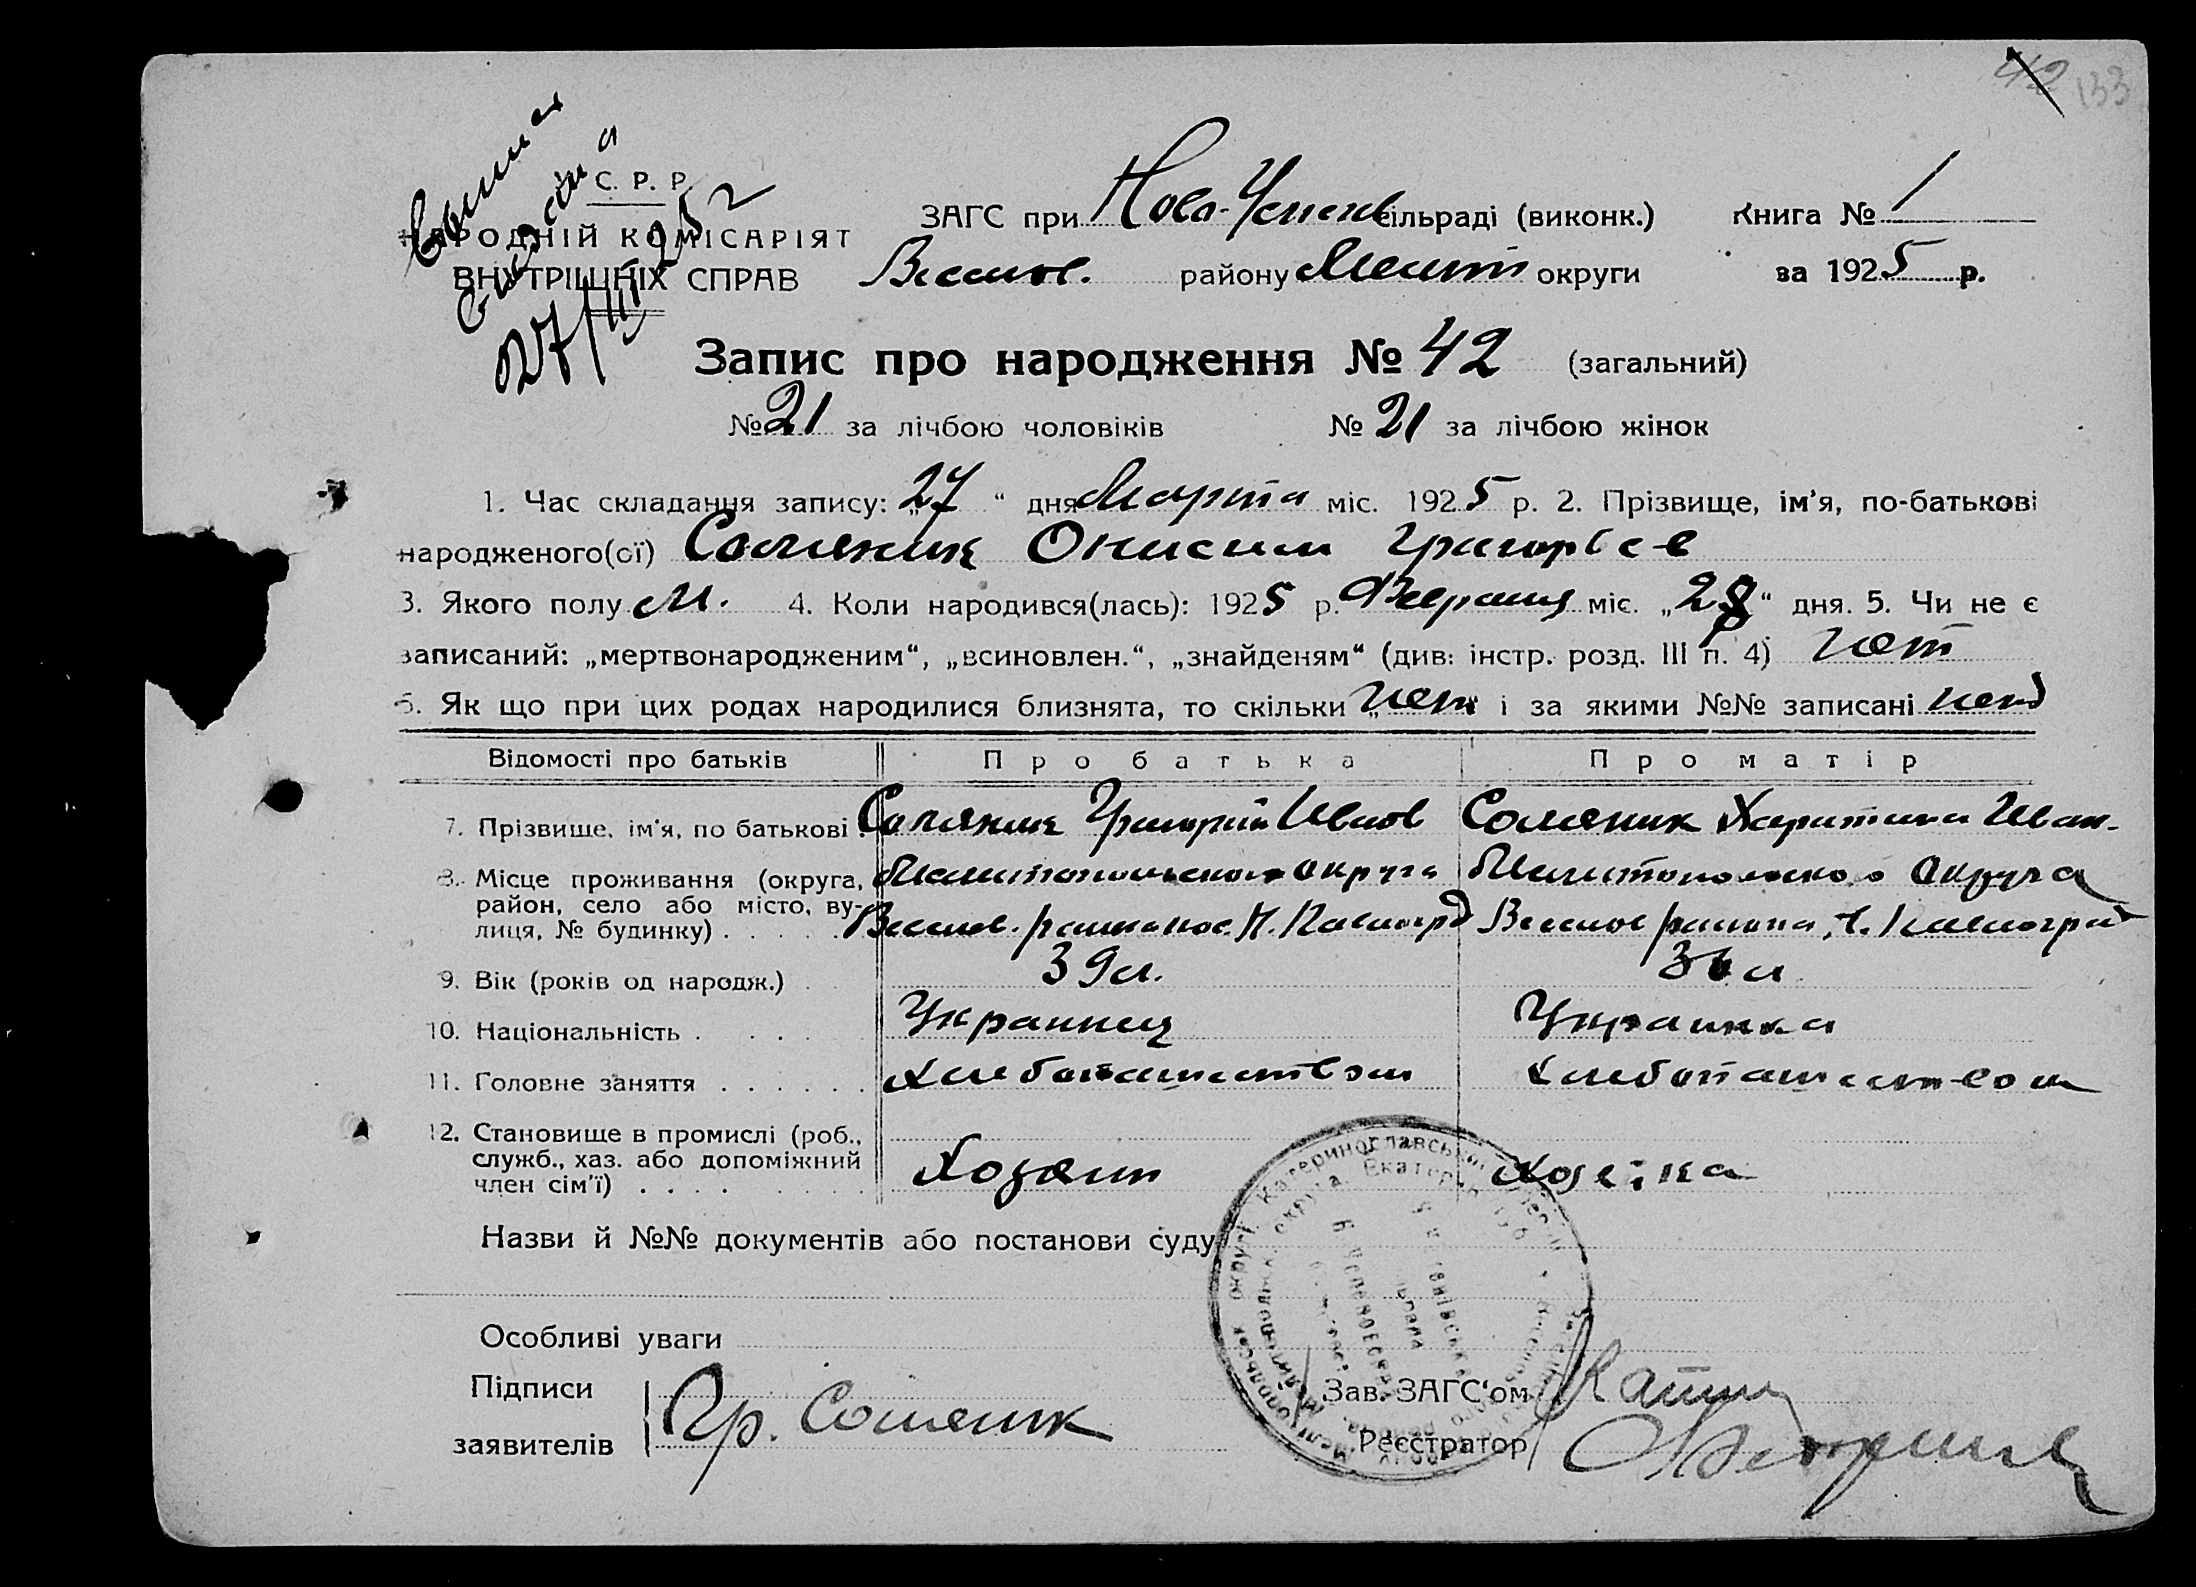 42 133
Выпись
выдана
27/III 25 г
С. Р. Р.
НАРОДНІЙ КОМІСАРІЯТ
ВНУТРІШНІХ СПРАВ
ЗАГС при Ново-Успен сільраді (виконк.) Книга № 1
Веселов. району Мелит округи за 1925 р.
Запис про народження № 42 (загальний)
№ 21 за лічбою чоловіків № 21 за лічбою жінок
1. Час складання запису: „27“ дня Марта міс. 1925 р. 2. Прізвище, ім'я, по-батькові
народженого(ої) Соляник Онисим Григорьев
3. Якого полу М. 4. Коли народився(лась): 1925 р. Февраля міс. „28“ дня. 5. Чи не є
записаний: „мертвонародженим“, „всиновлен.“, „знайденям“ (див: інстр. розд. III п. 4) нет
6. Як що при цих родах народилися близнята, то скільки „нет“ і за якими №№ записані нет
Відомості про батьків Про батька Про матір
7. Прізвище, ім'я, по батькові Соляник Григорий Иванов Соляник Харитина Иван.
8. Місце проживання (округа, Мелитопольского округа Мелитопольского округа
район, село або місто, ву- Веселов. района пос. Н. Павлоград Веселов района, Павлоград
лиця, № будинку)
9. Вік (років од народж.) 39 л. 36 л
10. Національність Украинец Украинка
11. Головне заняття Хлебопашеством Хлебопашеством
12. Становище в промислі (роб.,
служб., хаз. або допоміжний Хозяин Хозяйка
член сім'ї)
Назви й №№ документів або постанови суду
Особливі уваги
Підписи
заявителів Гр. Соляник
Зав. ЗАГС'ом
Реєстратор